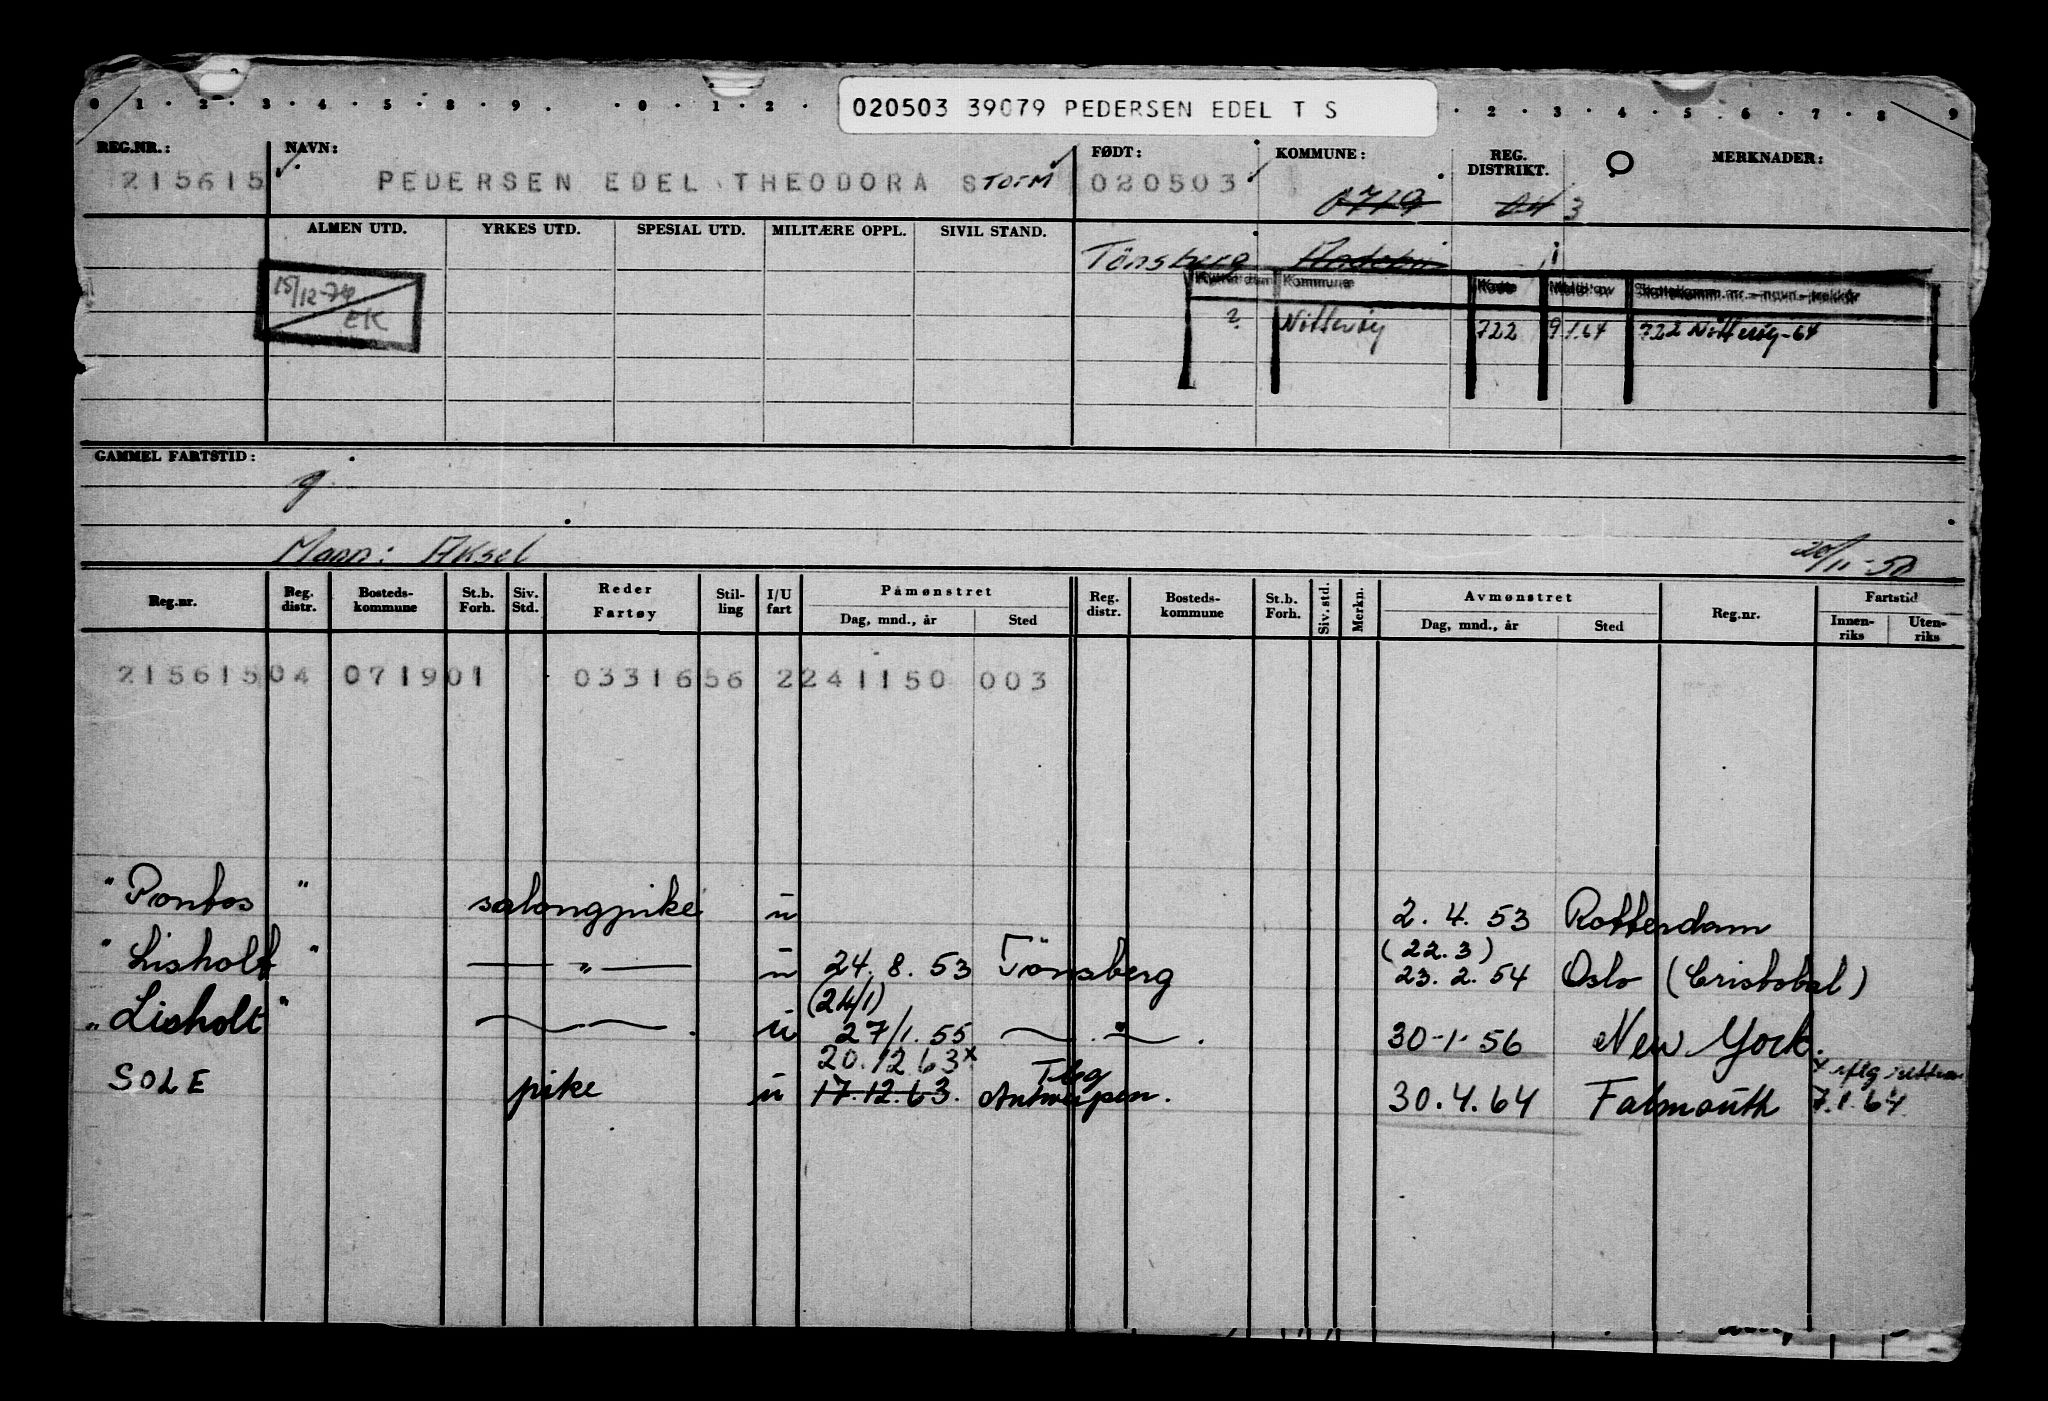 0 . 1 . 2 . 3 . 4 . 5 . 8 . 9 . . 0 . 1 . 2 . 020503 39079 PEDERSEN EDEL T S . 2 . 3 . 4 . 5 . 6 . 7 . 8 . 9
REG.NR.: NAVN: FØDT: KOMMUNE: REG. DISTRIKT. MERKNADER:
215615 PEDERSEN EDEL THEODORA STORM 020503
0719 04 3
ALMEN UTD. YRKES UTD. SPESIAL UTD. MILITÆRE OPPL. SIVIL STAND.
Tönsberg Andebu
15/12-74 EK
Kommune Kode
? Nötteröy 722 9.1.64 722 Nötteröy-64
GAMMEL FARTSTID:
g
Mann: Aksel 20/11-50
Reg.nr. Reg. distr. Bosteds-kommune St.b. Forh. Siv. Std. Reder Fartøy Stil-ling I/U fart Påmønstret Dag, mnd., år Sted Reg. distr. Bosteds-kommune St.b. Forh. Siv. std. Merkn. Avmønstret Dag, mnd., år Sted Reg.nr. Fartstid Innen-riks Uten-riks
215615 04 0719 01 0331656 2 241150 003
"Pontos" salongpike u 2.4.53 Rotterdam
(22.3)
"Lisholt" — " — u 24.8.53 Tönsberg 23.2.54 Oslo (Cristobal)
(24/1)
"Lisholt" u 27/1.55 — " — . 30-1-56 New York.
20.12.63x Tbg
SOLE pike u 17.12.63. Antwerpen. 30.4.64 Falmouth 7.1.64